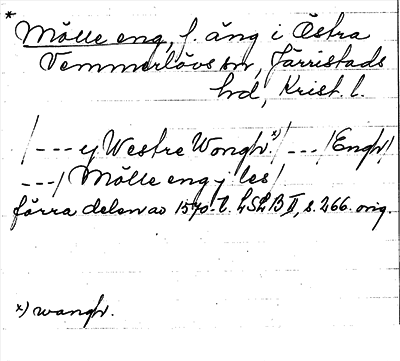 * Mölle eng, f. äng i Östra
Vemmerlövs sn, Järrestads
hd, Krist. l.
/--- y Westre Wongh.x)/ ---/Engh/
---/ Mölle eng j les/
förra delen av 1570-t. LSLB II, s. 266. orig.
x) wangh.